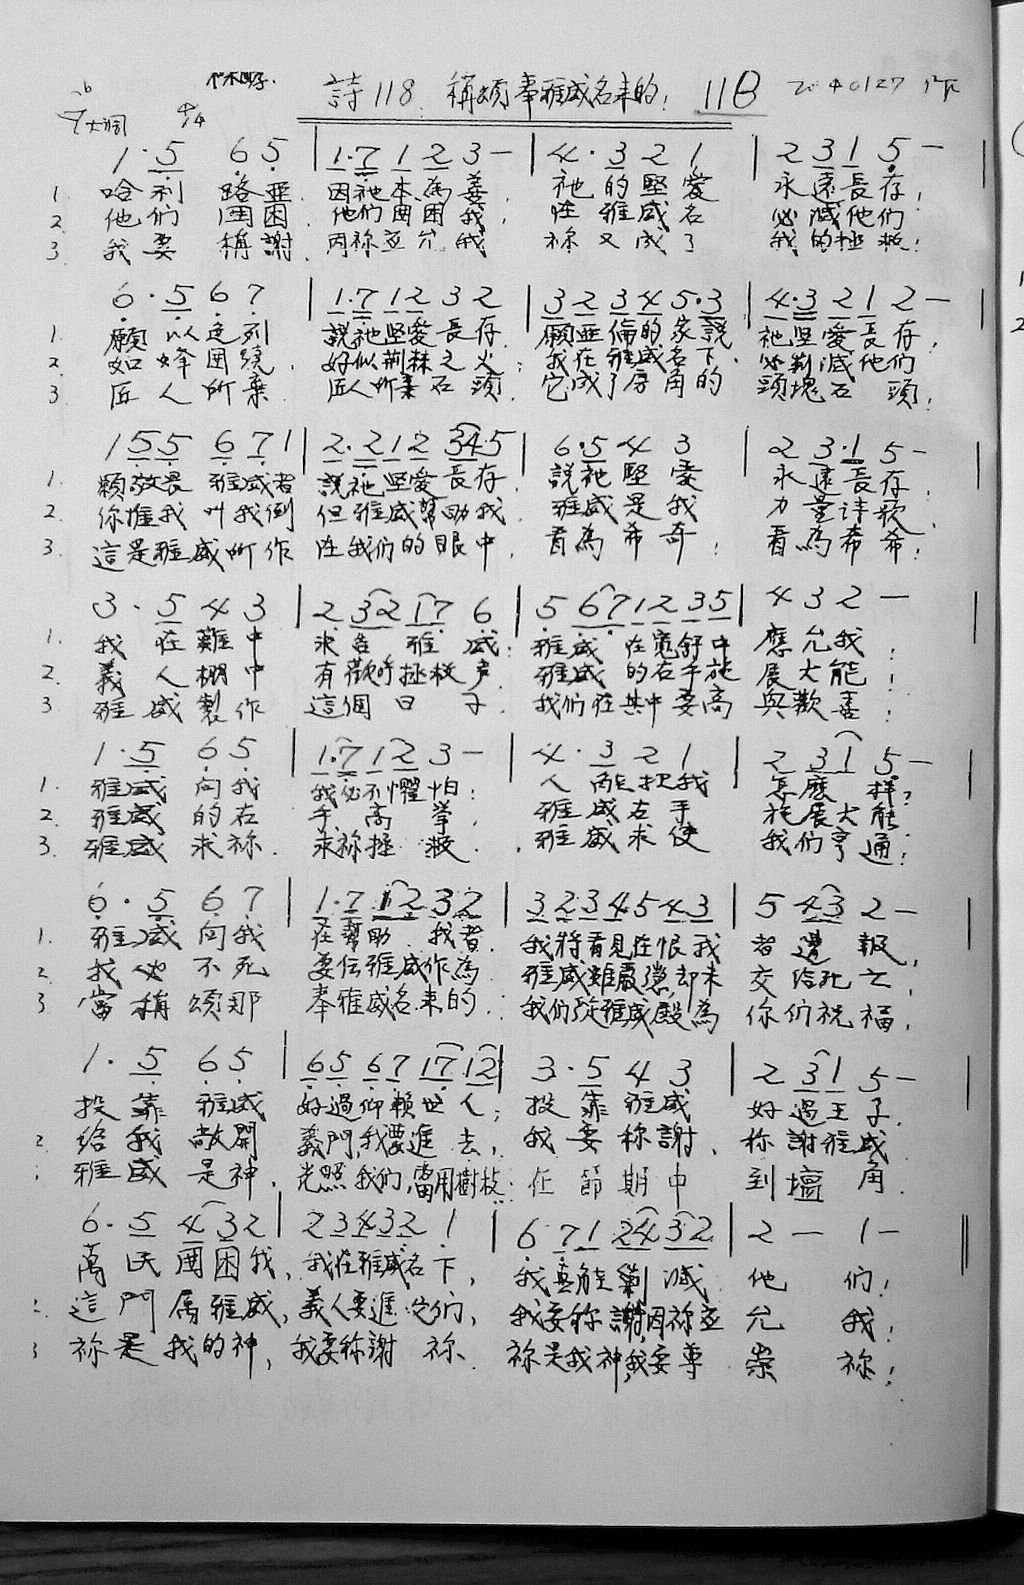 詩118. 稱頌奉雅威名來的! 118 20040127
大調 4/4
1 · 5 6 5 | 1 · 7 1 2 3 — | 4 · 3 2 1 | 2 3 1 5 —
1. 哈利 路亞. 因祂本為善. 祂的堅愛 永遠長存!
2. 他們 圍困. 他們圍困我. 在雅威名 必滅他們
3. 我要 稱謝. 因祢並允我 祢又成了 我的拯救!
6 · 5 6 7 | 1 · 7 1 2 3 2 | 3 2 3 4 5 · 3 | 4 · 3 2 1 2 —
1. 願以色列 說祂堅愛長存. 願亞倫的家說 祂堅愛長存!
2. 如蜂圍繞. 好似荊棘之火; 我在雅威名下. 必剿滅他們
3. 匠人所棄 匠人所棄石頭 它成了房角的 頭塊石頭!
1 5 5 6 7 1 | 2 · 2 1 2 3 4 · 5 | 6 · 5 4 3 | 2 3 · 1 5 —
1. 願敬畏雅威者 說祂堅愛長存. 說祂堅愛 永遠長存.
2. 你推我叫我倒 但雅威幫助我. 雅威是我 力量詩歌.
3. 這是雅威所作 在我們的眼中. 看為希奇! 看為希奇!
3 · 5 4 3 | 2 3 2 1 7 6 | 5 6 7 1 2 3 5 | 4 3 2 —
1. 我在難中 求告雅威! 雅威在寬舒中 應允我!
2. 義人棚中 有歡呼拯救声 雅威的右手施 展大能!
3. 雅威製作 這個日子. 我們在其中要高 興歡喜!
1 · 5 6 5 | 1 · 7 1 2 3 — | 4 · 3 2 1 | 2 3 1 5 —
1. 雅威向我 我必不懼怕! 人能把我 怎麼樣?
2. 雅威的右 手高舉. 雅威右手 施展大能.
3. 雅威求祢. 求祢拯救. 雅威求使 我們亨通!
6 · 5 6 7 | 1 · 7 1 2 3 2 | 3 2 3 4 5 4 3 | 5 4 3 2 —
1. 雅威向我 在幫助我者. 我將看見在恨我 者遭報.
2. 我必不死 要传雅威作為. 雅威雖嚴懲却未 交給死亡.
3 當稱頌那 奉雅威名來的. 我們從雅威殿為 你們祝福.
1 · 5 6 5 | 6 5 6 7 1 7 1 2 | 3 · 5 4 3 | 2 3 1 5 —
投靠雅威 好過仰賴世人; 投靠雅威 好過王子.
2. 給我敞開 義門,我要進去, 我要称謝. 称謝雅威
雅威是神. 光照我們,當用樹枝: 在節期中 到壇角.
6 · 5 4 3 2 | 2 3 4 3 2 1 | 6 · 7 1 2 4 3 2 | 2 — 1 —
萬民圍困我, 我在雅威名下, 我真能剿滅 他們!
2. 這門屬雅威, 義人要進它們, 我要称謝,因祢並 允我!
3 祢是我的神, 我要称謝祢. 祢是我神,我要尊 崇祢!